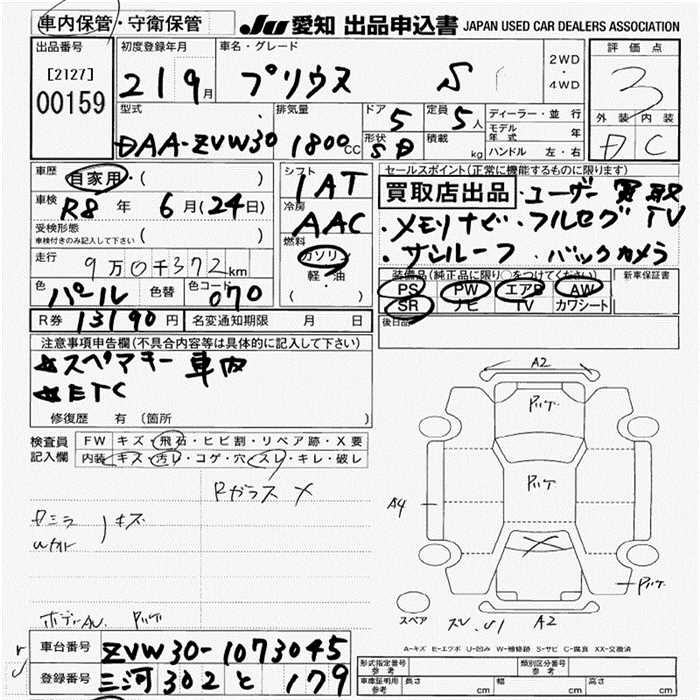 車内保管・守衛保管
JU 愛知 出品申込書 JAPAN USED CAR DEALERS ASSOCIATION
出品番号 初度登録年月 車名・グレード 2WD・4WD 評価点
[2127] 00159 21 9月 プリウス S 3
型式 排気量 ドア 定員 ディーラー・並行 外装 内装
DAA-ZVW30 1800CC 5 5人 モデル年式 年 D C
形状 5D 積載 kg ハンドル 左・右
車歴 自家用・( ) シフト 1AT セールスポイント(正常に機能するものに限ります)
車検 R8年 6月(24日) 冷房 AAC 買取店出品・ユーザー買取
受検形態 車検付きのみ記入して下さい ( ) 燃料 ・メモリナビ・フルセグTV
走行 9万0千372km ガソリン 軽・油 ( ) ・サンルーフ・バックカメラ
色 パール 色替 色コード 070 装備品(純正品に限り○をつけてください) 新車保証書
PS PW エアB AW
SR ナビ TV カワシート
R券 13190円 名変通知期限 月 日 後日品
注意事項申告欄(不具合内容等は具体的に記入して下さい)
☆スペアキー 車内
☆ETC
修復歴 有 (箇所 )
検査員記入欄 FW キズ・飛石・ヒビ割・リペア跡・X要
内装 キズ・汚レ・コゲ・穴・スレ・キレ・破レ
Rガラス X
キズ
A2
A4
A2
スペア
A-キズ E-エクボ U-凹み W-補修跡 S-サビ C-腐食 XX-交換済
車台番号 ZVW30-1073045
登録番号 三河 302 と 179
形式指定番号 参考 類別区分番号 参考
車庫証明用 参考 長さ cm 幅 cm 高さ cm